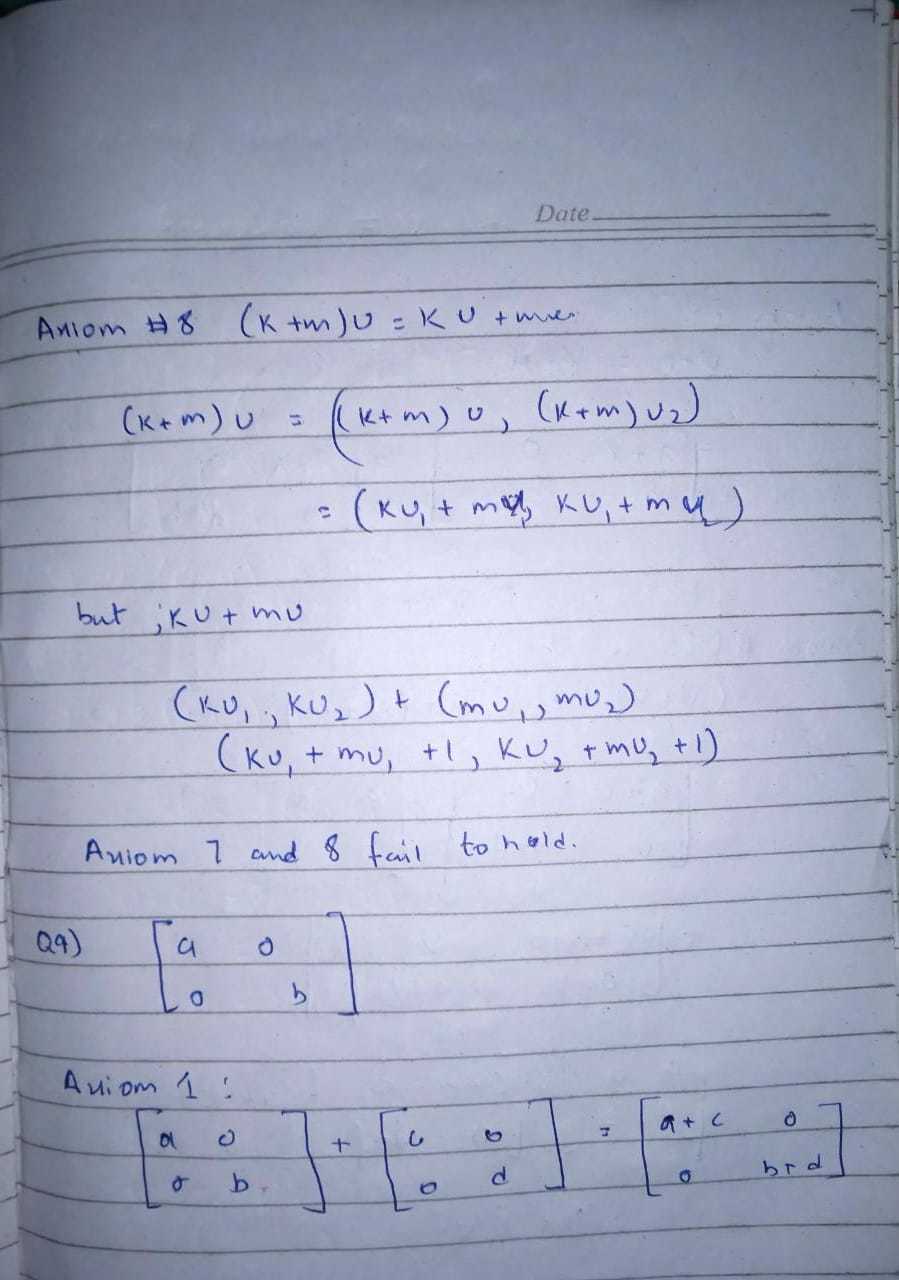 Date
Axiom #8 (K+m)U = KU + mu
(K+m)U = ((K+m)U, (K+m)U₂)
= (KU₁ + mu, KU₁ + mu)
but ; KU + mU
(KU₁, KU₂) + (mU₁, mU₂)
(KU₁ + mU₁ +1, KU₂ + mU₂ +1)
Axiom 7 and 8 fail to hold.
Q9) [a 0
0 b]
Axiom 1 :
[a 0 ] + [c 0 ] = [a+c 0 ]
[0 b ] [0 d ] [0 b+d]